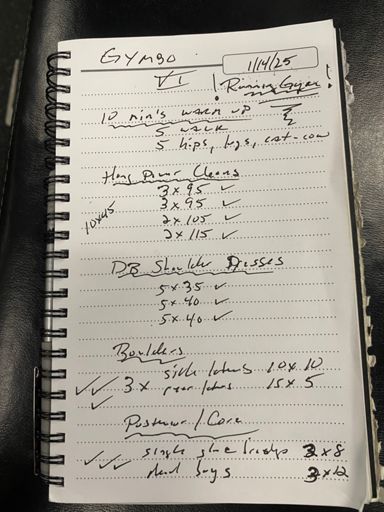 GYMBO
1/14/25
V1
! Running Gym !
10 min's warm up
5 walk
5 hips, legs, cat-cow
Hang Power Cleans
10x45
3 x 95 ✓
3 x 95 ✓
2 x 105 ✓
2 x 115 ✓
DB Shoulder Presses
5 x 35 ✓
5 x 40 ✓
5 x 40 ✓
Boulders
side laterals 10 x 10
✓✓ 3 x rear laterals 15 x 5
✓
Posterior / Core
✓✓ single glute bridges 3 x 8
dead bugs 3 x 12